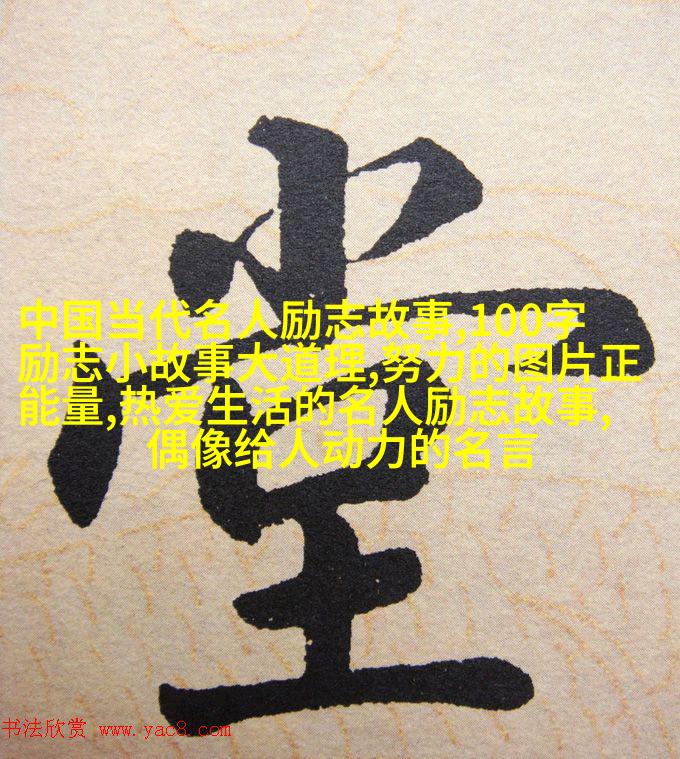 堂
中国当代名人励志故事,100字
励志小故事大道理,努力的图片正
能量,热爱生活的名人励志故事,
偶像给人动力的名言
书法欣赏 www.yac8.com